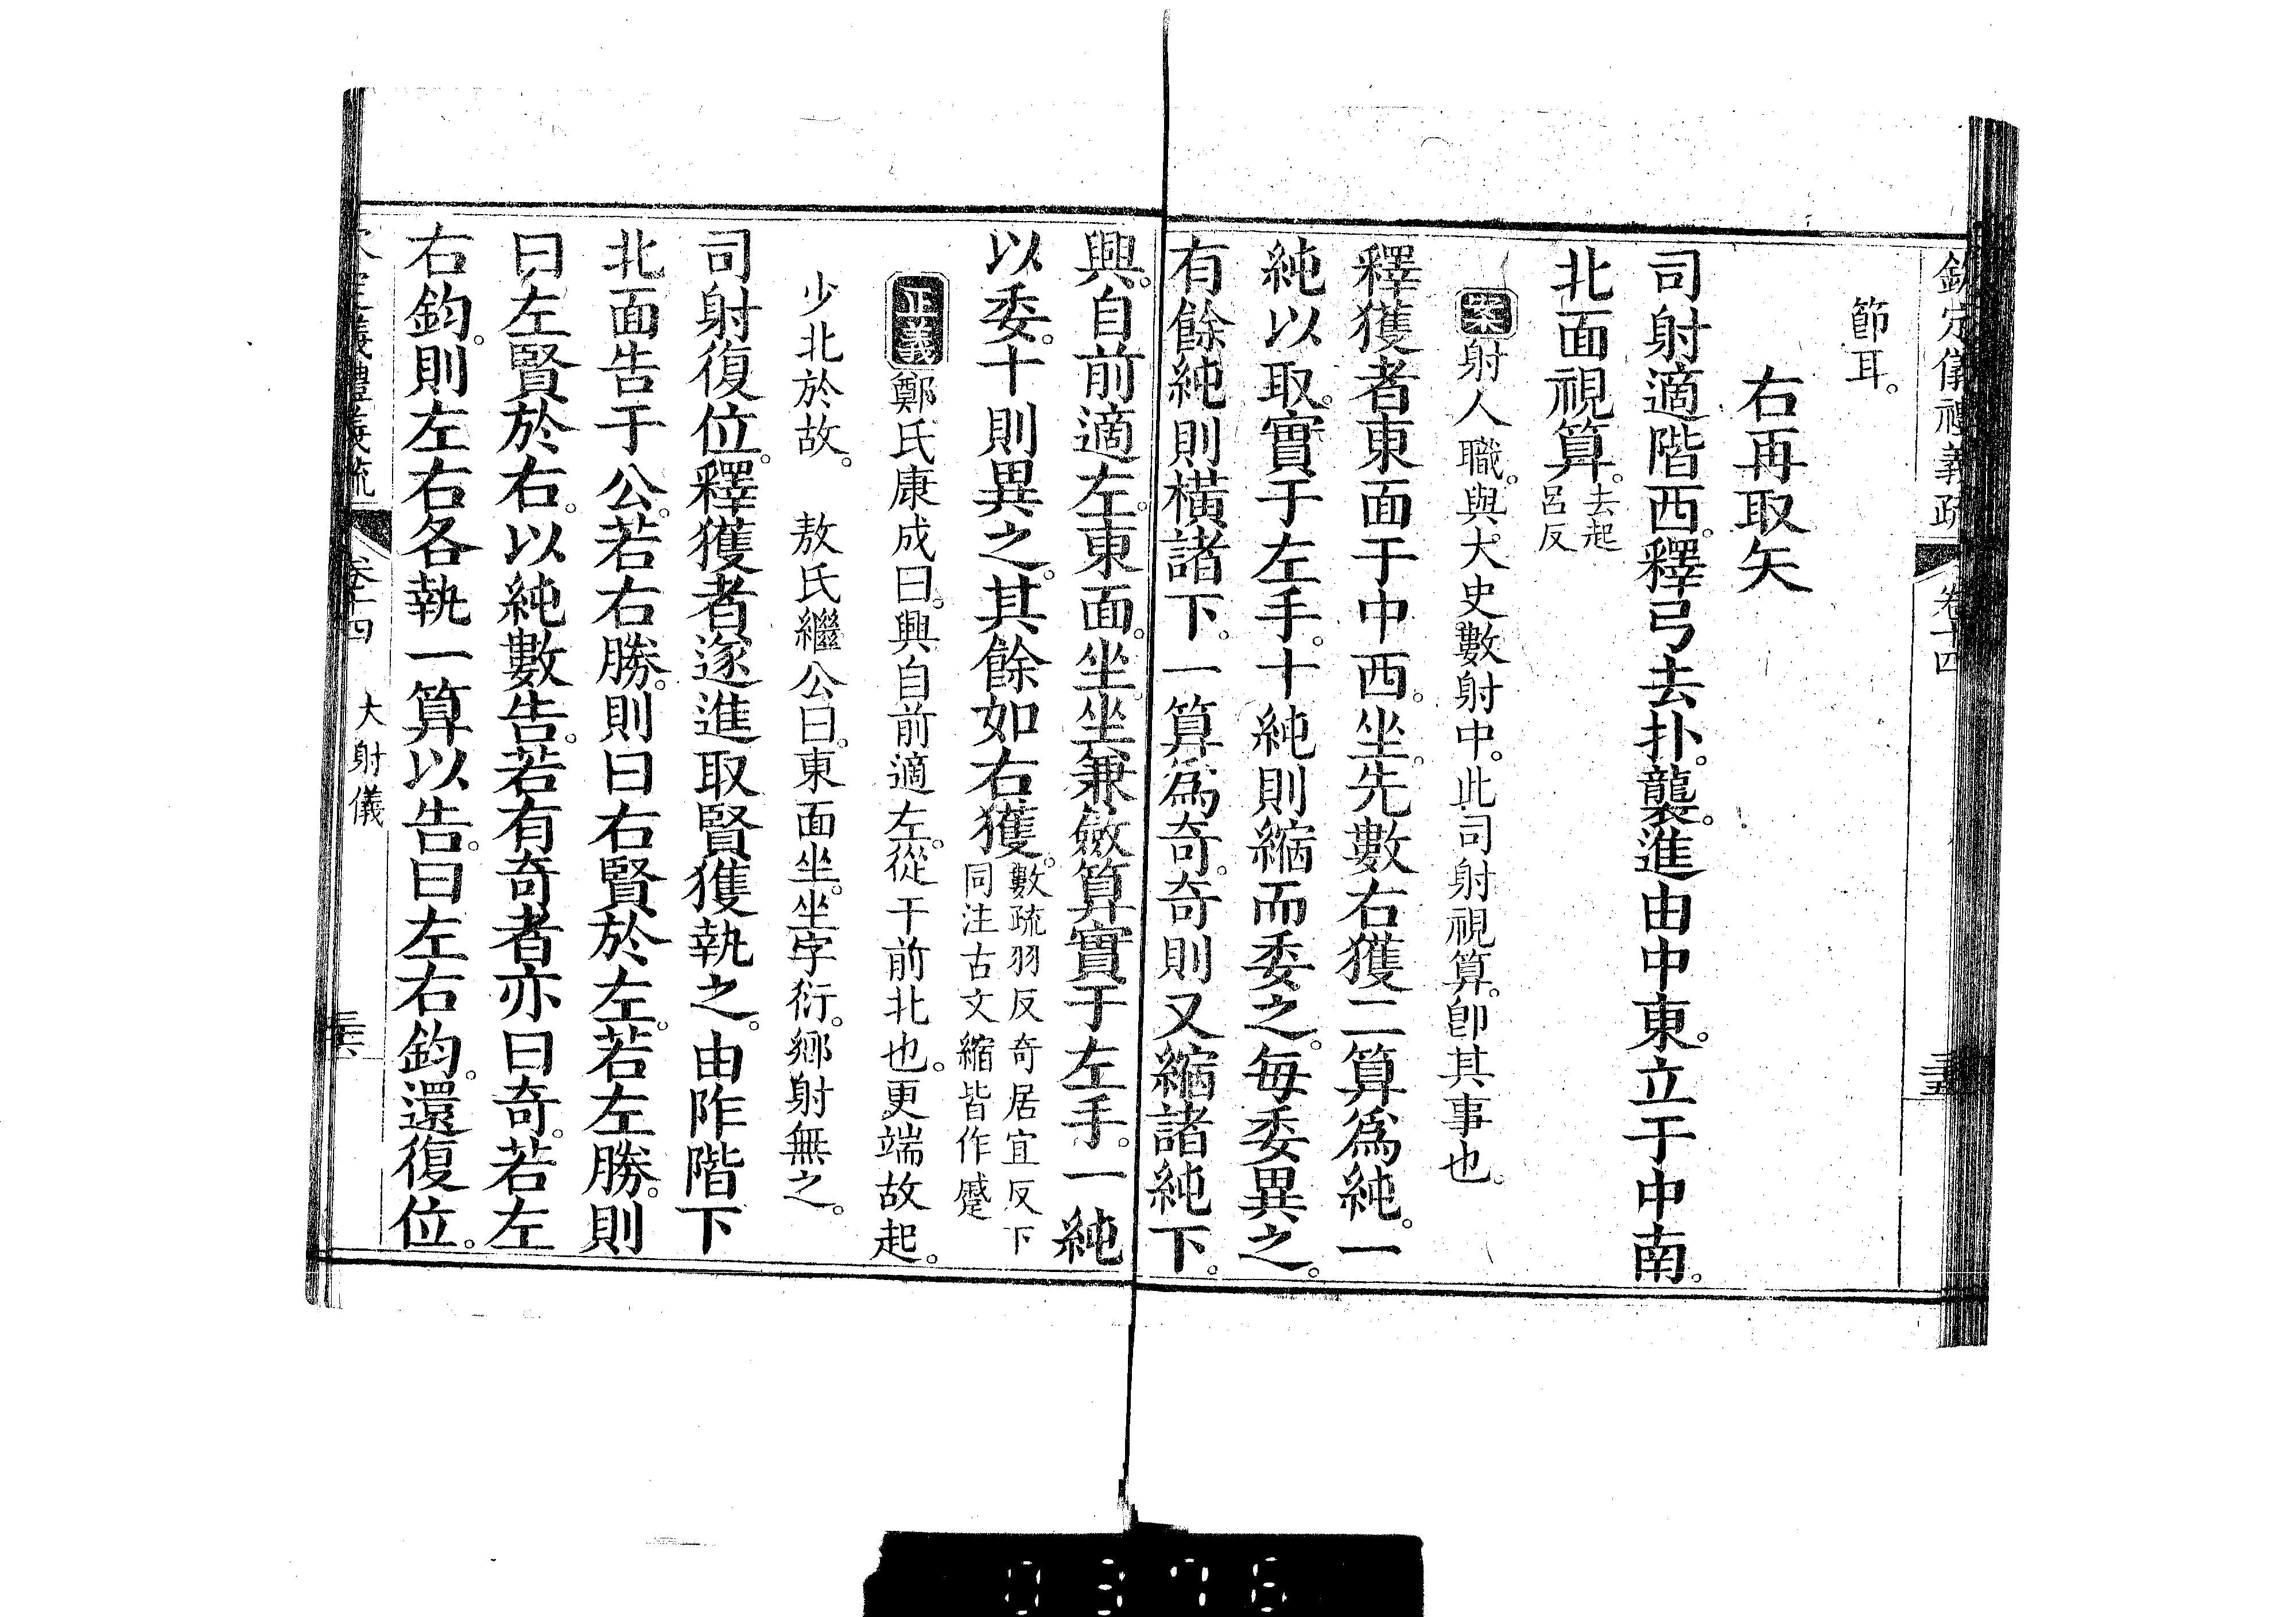 欽定儀禮義疏 卷十四 三五
節耳。
右再取矢
司射適階西。釋弓去扑。襲。進由中東。立于中南。
北面視算。去起呂反
案射人職。與大史數射中。此司射視算。卽其事也。
釋獲者東面于中西。坐。先數右獲。二算爲純。一
純以取。實于左手。十純則縮而委之。每委異之。
有餘純則橫諸下。一算爲奇。奇則又縮諸純下。
興。自前適左。東面。坐。坐兼斂算。實于左手。一純
以委。十則異之。其餘如右獲。數疏羽反奇居宜反下同注古文縮皆作蹙
正義鄭氏康成曰。興自前適左。從干前北也。更端故起。
少北於故。 敖氏繼公曰。東面坐。坐字衍。鄉射無之。
司射復位。釋獲者遂進取賢獲執之。由阼階下
北面告于公。若右勝。則曰右賢於左。若左勝。則
曰左賢於右。以純數告。若有奇者亦曰奇。若左
右鈞。則左右各執一算以告。曰左右鈞。還復位。
定儀禮義疏 卷十四 大射儀 三六
0376